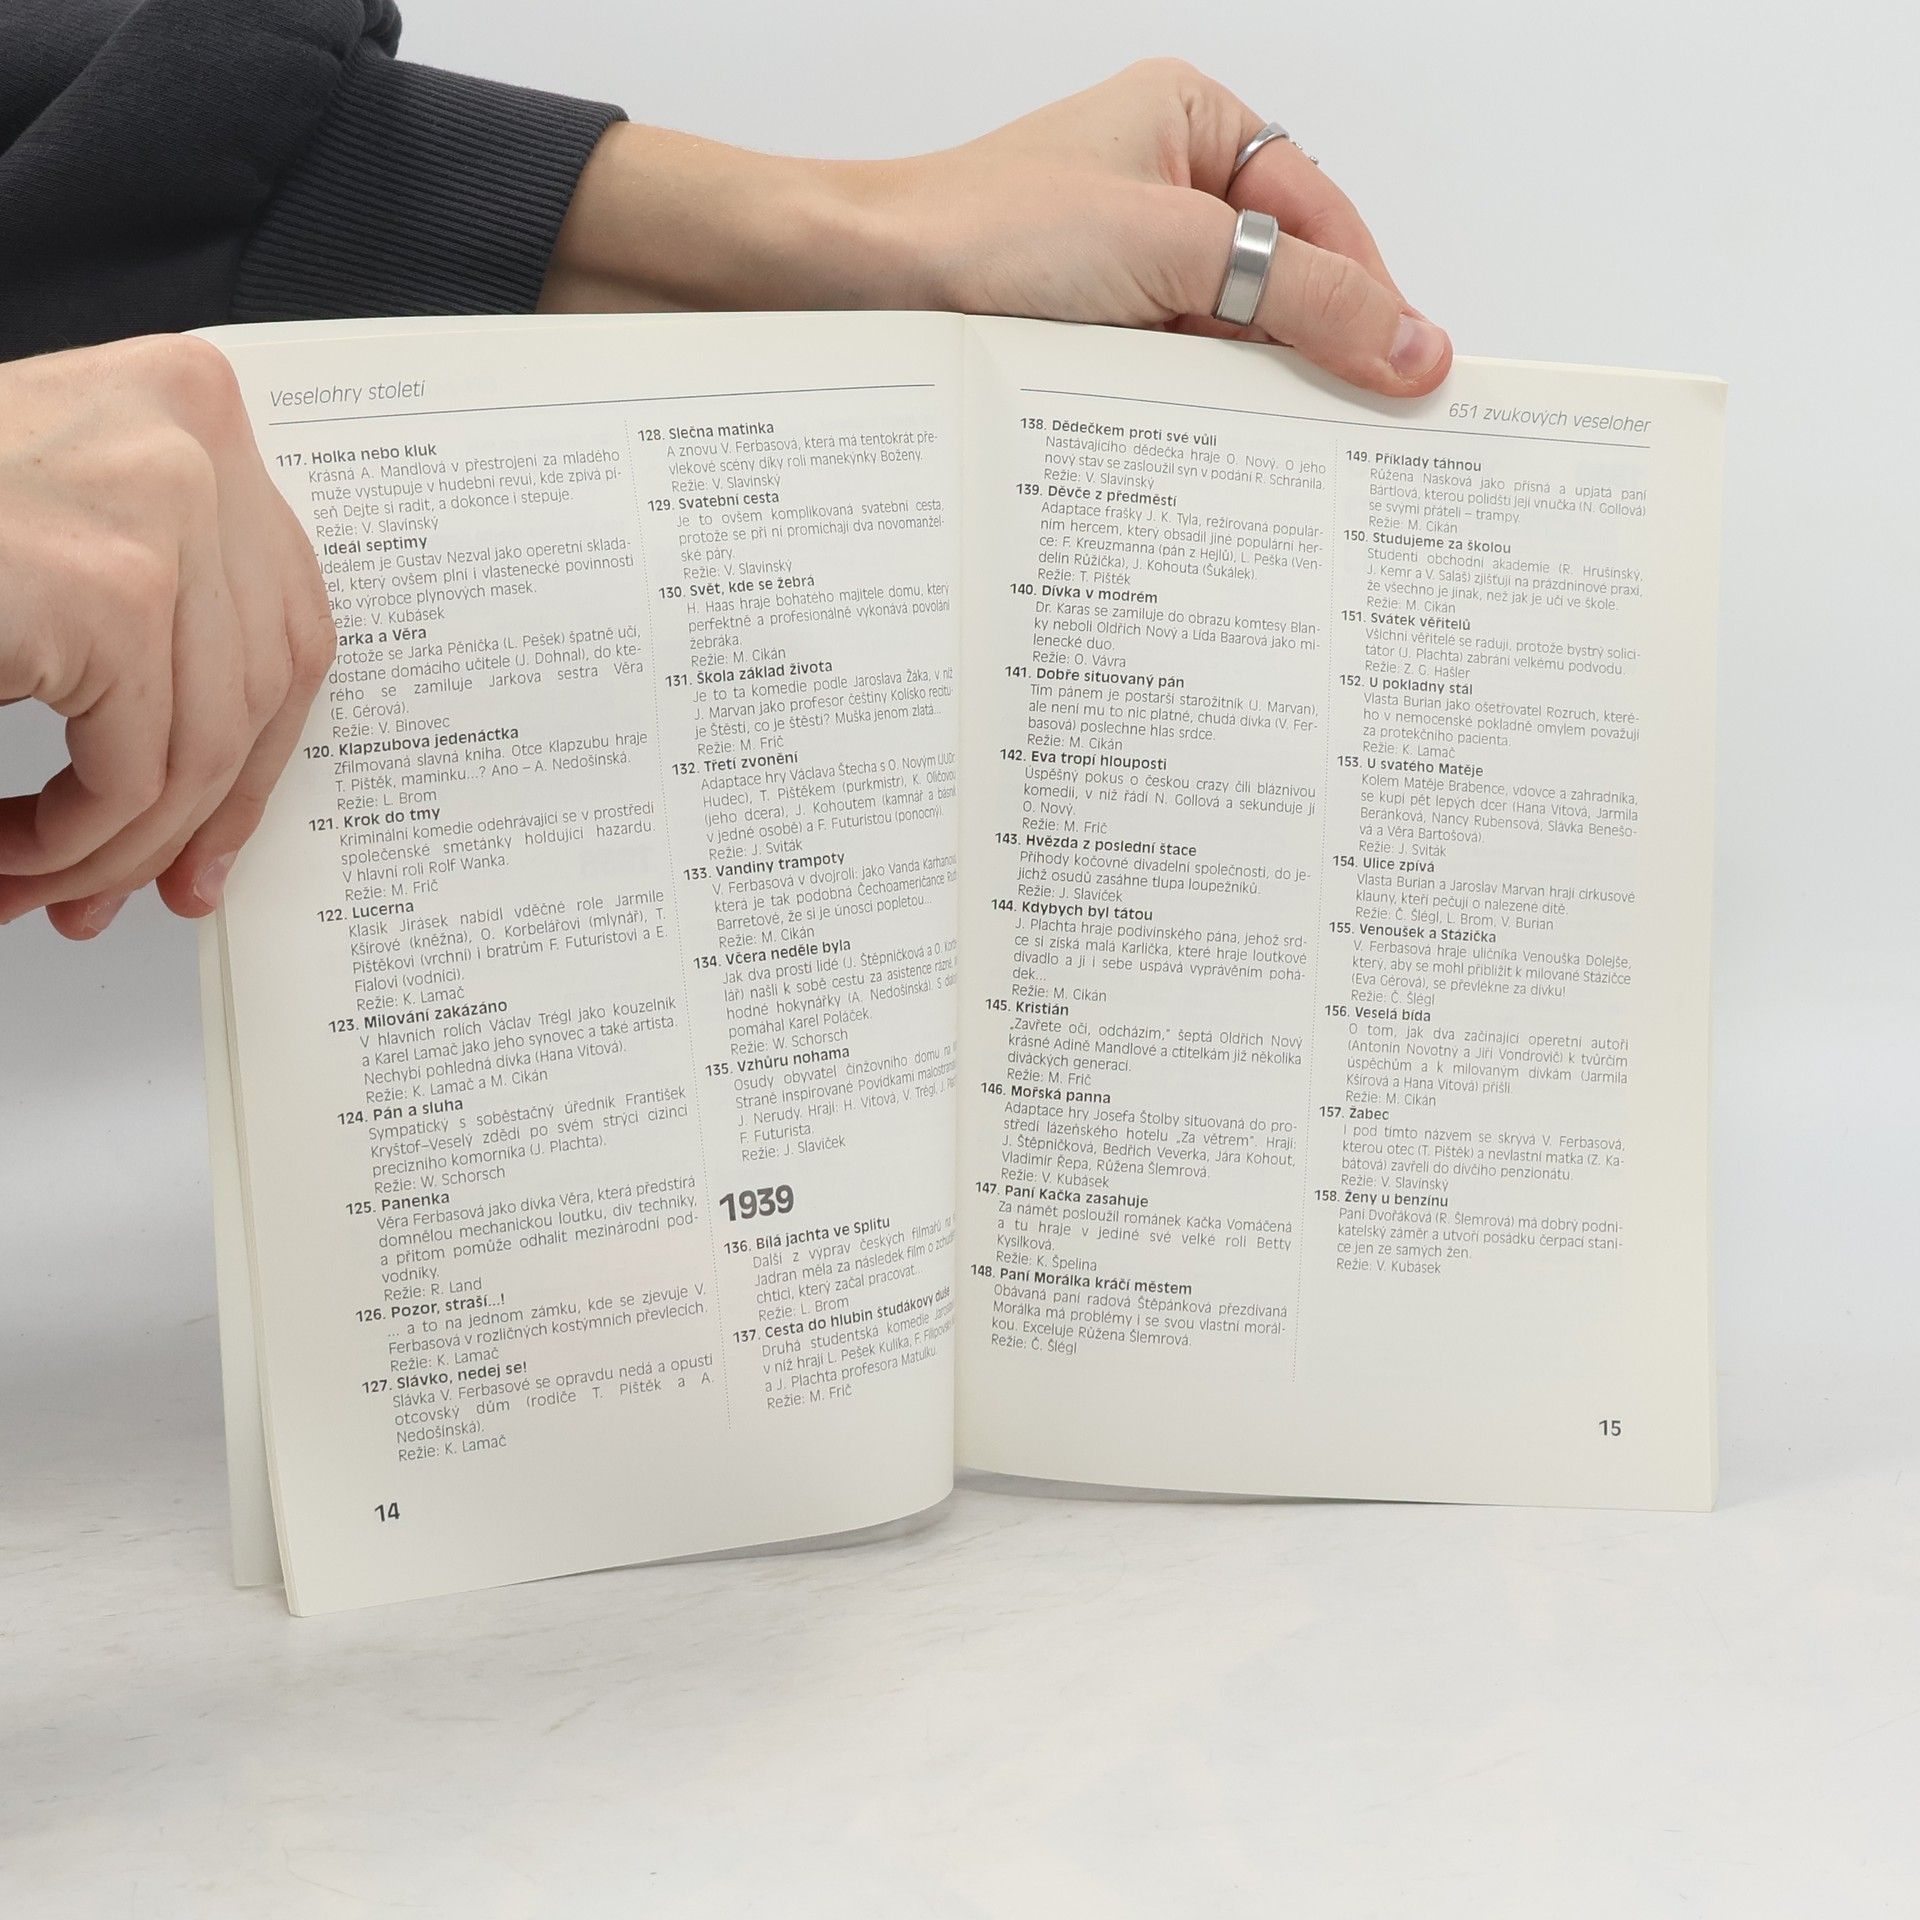 Veselohry století
117. Holka nebo kluk
Krásná A. Mandlová v přestrojení za mladého
muže vystupuje v hudební revui, kde zpívá pí-
seň Dejte si radit, a dokonce i stepuje.
Režie: V. Slavínský
. Ideál septimy
Ideálem je Gustav Nezval jako operetní sklada-
tel, který ovšem plní i vlastenecké povinnosti
ako výrobce plynových masek.
ežie: V. Kubásek
Jarka a Věra
rotože se Jarka Pěnička (L. Pešek) špatně učí,
dostane domácího učitele (J. Dohnal), do kte-
rého se zamiluje Jarkova sestra Věra
(E. Gérová).
Režie: V. Binovec
120. Klapzubova jedenáctka
Zfilmovaná slavná kniha. Otce Klapzubu hraje
T. Pištěk, maminku...? Ano – A. Nedošinská.
Režie: L. Brom
121. Krok do tmy
Kriminální komedie odehrávající se v prostředí
společenské smetánky holdující hazardu.
V hlavní roli Rolf Wanka.
Režie: M. Frič
122. Lucerna
Klasik Jirásek nabídl vděčné role Jarmile
Kšírové (kněžna), O. Korbelářovi (mlynář), T.
Pištěkovi (vrchní) i bratrům F. Futuristovi a E.
Fialovi (vodníci).
Režie: K. Lamač
123. Milování zakázáno
V hlavních rolích Václav Trégl jako kouzelník
a Karel Lamač jako jeho synovec a také artista.
Nechybí pohledná dívka (Hana Vítová).
Režie: K. Lamač a M. Cikán
124. Pán a sluha
Sympatický s soběstačný úředník František
Kryštof–Veselý zdědí po svém strýci cizinci
precizního komorníka (J. Plachta).
Režie: W. Schorsch
125. Panenka
Věra Ferbasová jako dívka Věra, která předstírá
domnělou mechanickou loutku, div techniky,
a přitom pomůže odhalit mezinárodní pod-
vodníky.
Režie: R. Land
126. Pozor, straší...!
... a to na jednom zámku, kde se zjevuje V.
Ferbasová v rozličných kostýmních převlecích.
Režie: K. Lamač
127. Slávko, nedej se!
Slávka V. Ferbasové se opravdu nedá a opustí
otcovský dům (rodiče T. Pištěk a A.
Nedošinská).
Režie: K. Lamač
128. Slečna matinka
A znovu V. Ferbasová, která má tentokrát pře-
vlekové scény díky roli manekýnky Boženy.
Režie: V. Slavínský
129. Svatební cesta
Je to ovšem komplikovaná svatební cesta,
protože se při ní promíchají dva novomanžel-
ské páry.
Režie: V. Slavínský
130. Svět, kde se žebrá
H. Haas hraje bohatého majitele domu, který
perfektně a profesionálně vykonává povolání
žebráka.
Režie: M. Cikán
131. Škola základ života
Je to ta komedie podle Jaroslava Žáka, v níž
J. Marvan jako profesor češtiny Kolisko recitu-
je Štěstí, co je štěstí? Muška jenom zlatá...
Režie: M. Frič
132. Třetí zvonění
Adaptace hry Václava Štecha s O. Novým (JUDr.
Hudec), T. Pištěkem (purkmistr), K. Oličovou
(jeho dcera), J. Kohoutem (kamnář a básník
v jedné osobě) a F. Futuristou (ponocný).
Režie: J. Sviták
133. Vandiny trampoty
V. Ferbasová v dvojroli: jako Vanda Karhanová,
která je tak podobná Čechoameričance Ruth
Barretové, že si je únosci popletou...
Režie: M. Cikán
134. Včera neděle byla
Jak dva prostí lidé (J. Štěpničková a O. Korbe-
lář) našli k sobě cestu za asistence rázné a
hodné hokynářky (A. Nedošinská). S dialogy
pomáhal Karel Poláček.
Režie: W. Schorsch
135. Vzhůru nohama
Osudy obyvatel činžovního domu na
Straně inspirované Povídkami malostranskými
J. Nerudy. Hrají: H. Vítová, V. Trégl, J. Plachta,
F. Futurista.
Režie: J. Slavíček
1939
136. Bílá jachta ve Splitu
Další z výprav českých filmařů na
Jadran měla za následek film o zchudlém
chtici, který začal pracovat...
Režie: L. Brom
137. Cesta do hlubin študákovy duše
Druhá studentská komedie Jaroslava
v níž hrají L. Pešek Kulíka, F. Filipovský
a J. Plachta profesora Matulku.
Režie: M. Frič
14
651 zvukových veseloher
138. Dědečkem proti své vůli
Nastávajícího dědečka hraje O. Nový. O jeho
nový stav se zasloužil syn v podání R. Schránila.
Režie: V. Slavínský
139. Děvče z předměstí
Adaptace frašky J. K. Tyla, režírovaná populár-
ním hercem, který obsadil jiné populární her-
ce: F. Kreuzmanna (pán z Hejlů), L. Peška (Ven-
delín Růžička), J. Kohouta (Šukálek).
Režie: T. Pištěk
140. Dívka v modrém
Dr. Karas se zamiluje do obrazu komtesy Blan-
ky neboli Oldřich Nový a Lída Baarová jako mi-
lenecké duo.
Režie: O. Vávra
141. Dobře situovaný pán
Tím pánem je postarší starožitník (J. Marvan),
ale není mu to nic platné, chudá dívka (V. Fer-
basová) poslechne hlas srdce.
Režie: M. Cikán
142. Eva tropí hlouposti
Úspěšný pokus o českou crazy čili bláznivou
komedii, v níž řádí N. Gollová a sekunduje jí
O. Nový.
Režie: M. Frič
143. Hvězda z poslední štace
Příhody kočovné divadelní společnosti, do je-
jíchž osudů zasáhne tlupa loupežníků.
Režie: J. Slavíček
144. Kdybych byl tátou
J. Plachta hraje podivínského pána, jehož srd-
ce si získá malá Karlička, které hraje loutkové
divadlo a ji i sebe uspává vyprávěním pohá-
dek...
Režie: M. Cikán
145. Kristián
„Zavřete oči, odcházím," šeptá Oldřich Nový
krásné Adině Mandlové a ctitelkám již několika
diváckých generací.
Režie: M. Frič
146. Mořská panna
Adaptace hry Josefa Štolby situovaná do pro-
středí lázeňského hotelu „Za větrem". Hrají:
J. Štěpničková, Bedřich Veverka, Jára Kohout,
Vladimír Řepa, Růžena Šlemrová.
Režie: V. Kubásek
147. Paní Kačka zasahuje
Za námět posloužil románek Kačka Vomáčená
a tu hraje v jediné své velké roli Betty
Kysilková.
Režie: K. Špelina
148. Paní Morálka kráčí městem
Obávaná paní radová Štěpánková přezdívaná
Morálka má problémy i se svou vlastní morál-
kou. Exceluje Růžena Šlemrová.
Režie: Č. Šlégl
149. Příklady táhnou
Růžena Nasková jako přísná a upjatá paní
Bártlová, kterou polidští její vnučka (N. Gollová)
se svými přáteli – trampy.
Režie: M. Cikán
150. Studujeme za školou
Studenti obchodní akademie (R. Hrušínský,
J. Kemr a V. Salač) zjišťují na prázdninové praxi,
že všechno je jinak, než jak je učí ve škole.
Režie: M. Cikán
151. Svátek věřitelů
Všichni věřitelé se radují, protože bystrý solici-
tátor (J. Plachta) zabrání velkému podvodu.
Režie: Z. G. Hašler
152. U pokladny stál
Vlasta Burian jako ošetřovatel Rozruch, které-
ho v nemocenské pokladně omylem považují
za protekčního pacienta.
Režie: K. Lamač
153. U svatého Matěje
Kolem Matěje Brabence, vdovce a zahradníka,
se kupí pět lepých dcer (Hana Vítová, Jarmila
Beránková, Nancy Rubensová, Slávka Benešo-
vá a Věra Bartošová).
Režie: J. Sviták
154. Ulice zpívá
Vlasta Burian a Jaroslav Marvan hrají cirkusové
klauny, kteří pečují o nalezené dítě.
Režie: Č. Šlégl, L. Brom, V. Burian
155. Venoušek a Stázička
V. Ferbasová hraje uličníka Venouška Dolejše,
který, aby se mohl přiblížit k milované Stázičce
(Eva Gérová), se převlékne za dívku!
Režie: Č. Šlégl
156. Veselá bída
O tom, jak dva začínající operetní autoři
(Antonín Novotný a Jiří Vondrovič) k tvůrčím
úspěchům a k milovaným dívkám (Jarmila
Kšírová a Hana Vítová) přišli.
Režie: M. Cikán
157. Žabec
I pod tímto názvem se skrývá V. Ferbasová,
kterou otec (T. Pištěk) a nevlastní matka (Z. Ka-
bátová) zavřeli do dívčího penzionátu.
Režie: V. Slavínský
158. Ženy u benzínu
Paní Dvořáková (R. Šlemrová) má dobrý podni-
katelský záměr a utvoří posádku čerpací stani-
ce jen ze samých žen.
Režie: V. Kubásek
15